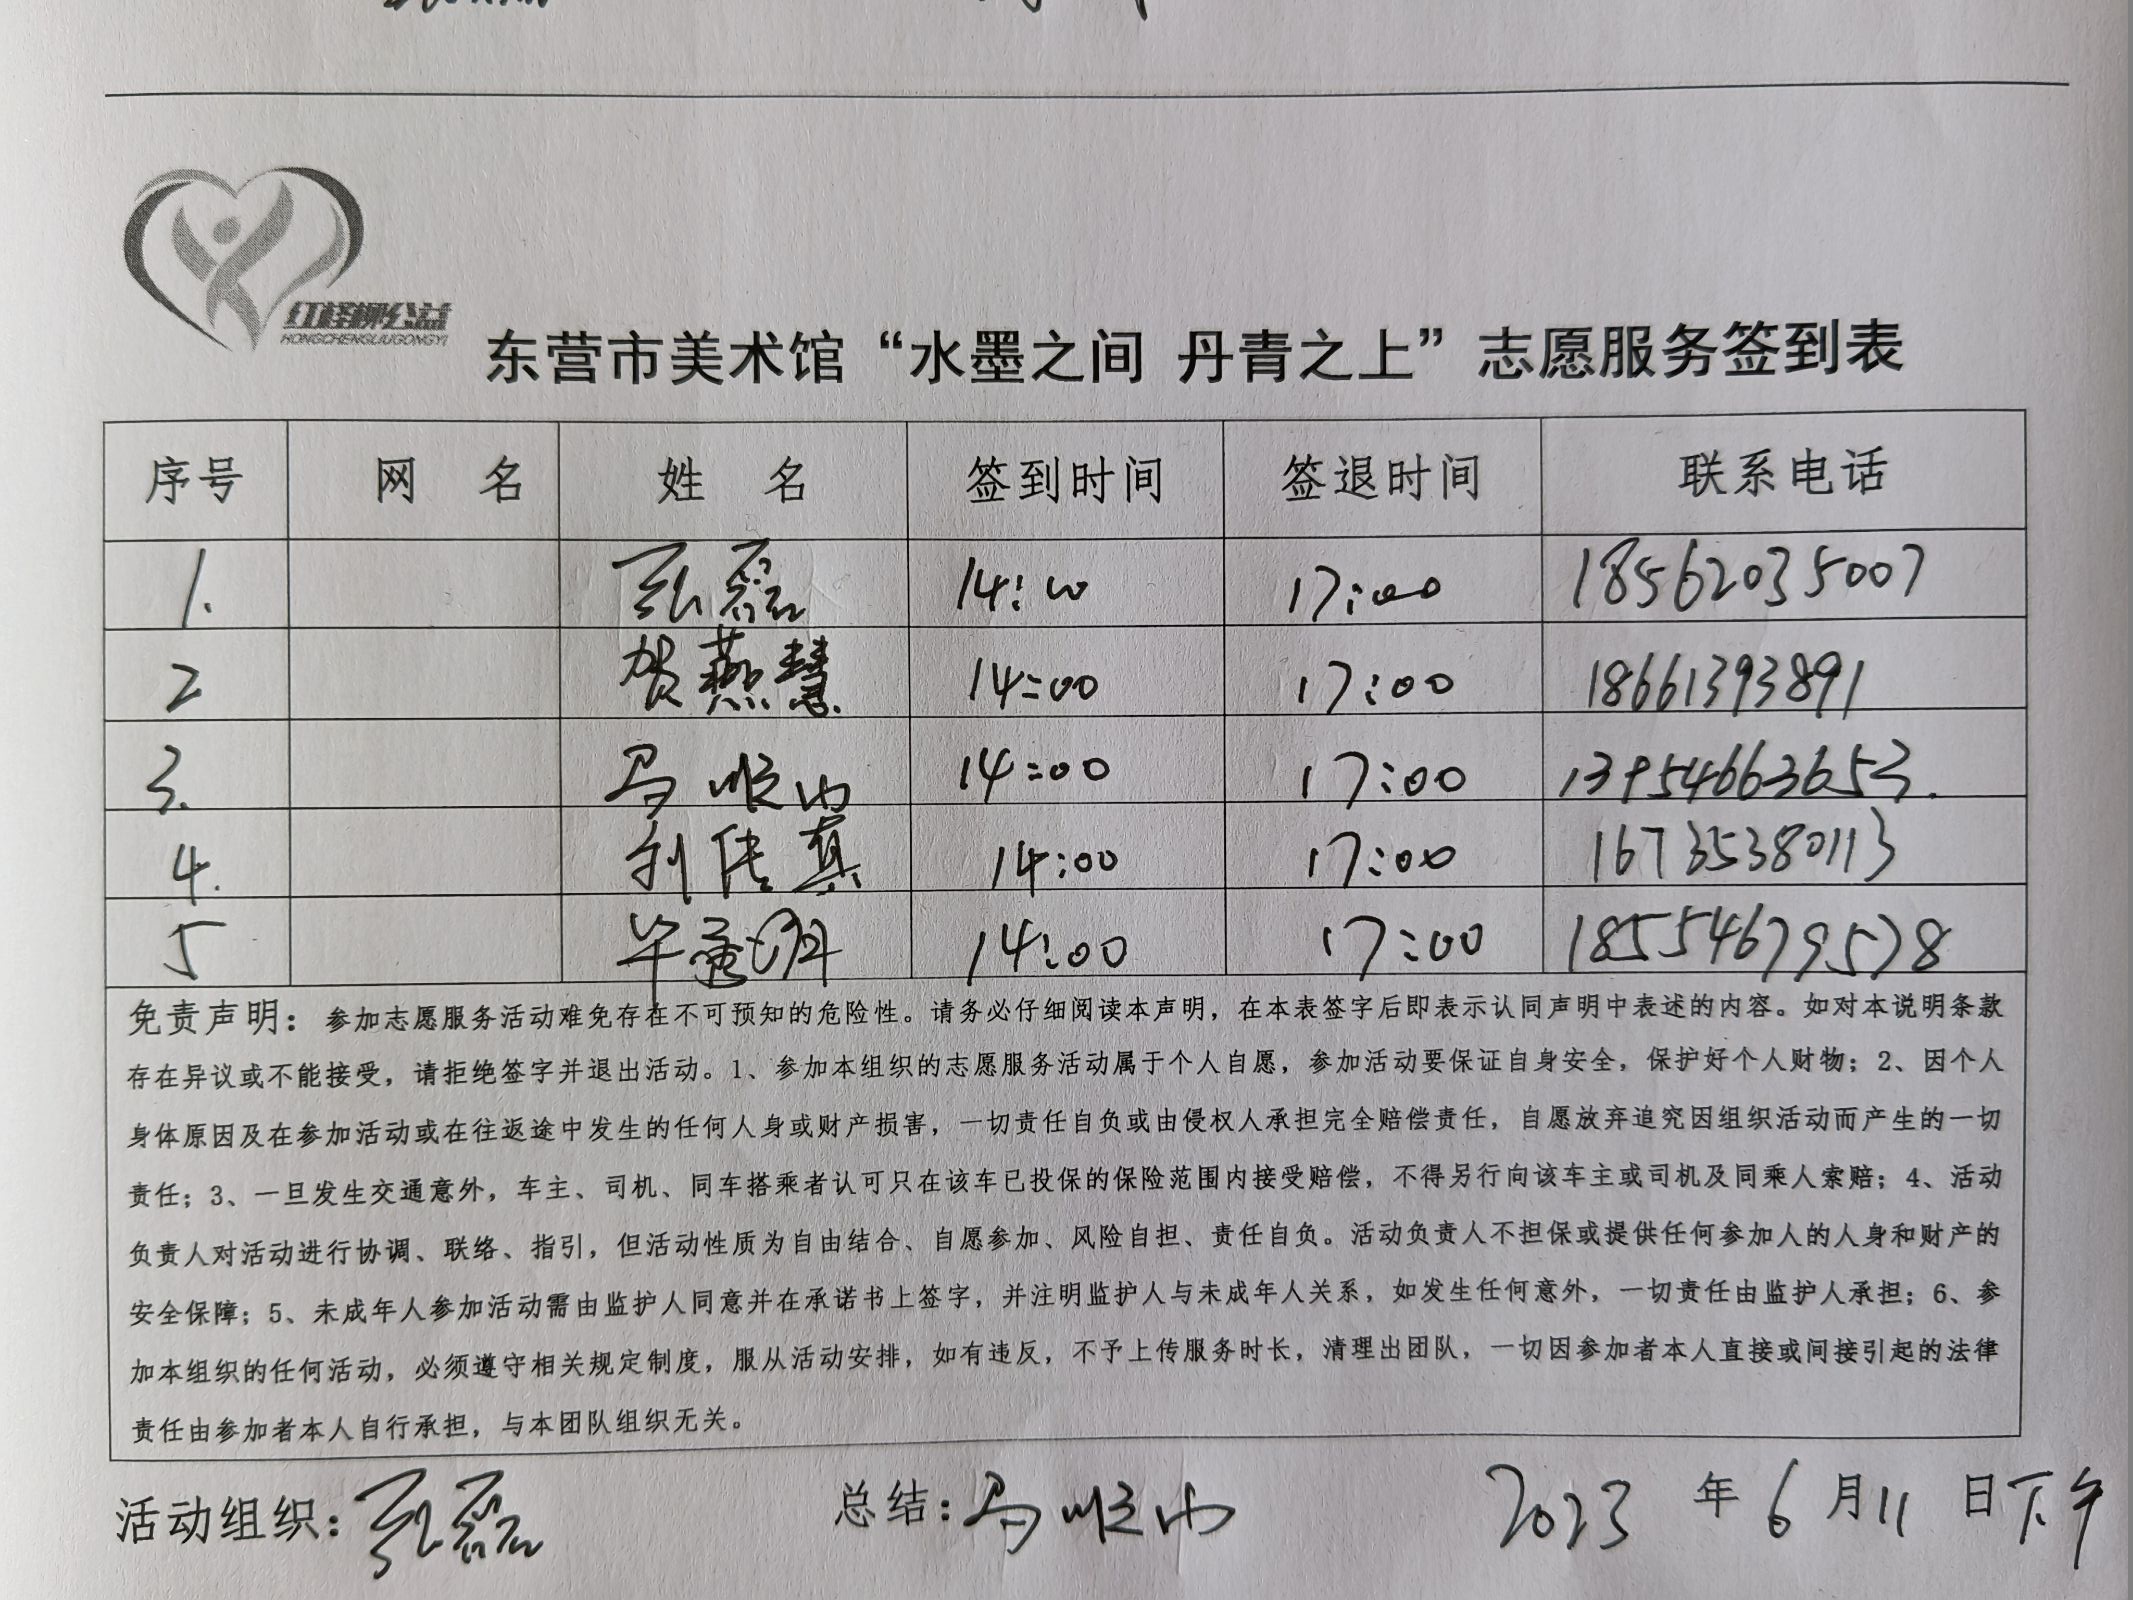 红柽柳公益
HONGCHENGLIUGONGYI
东营市美术馆“水墨之间 丹青之上”志愿服务签到表
序号 网 名 姓 名 签到时间 签退时间 联系电话
1. 张磊 14:00 17:00 18562035007
2 贺燕慧 14:00 17:00 18661393891
3. 马顺山 14:00 17:00 13954663653.
4. 刘传真 14:00 17:00 16735380113
5 毕 14:00 17:00 18554679578
免责声明：参加志愿服务活动难免存在不可预知的危险性。请务必仔细阅读本声明，在本表签字后即表示认同声明中表述的内容。如对本说明条款
存在异议或不能接受，请拒绝签字并退出活动。1、参加本组织的志愿服务活动属于个人自愿，参加活动要保证自身安全，保护好个人财物；2、因个人
身体原因及在参加活动或在往返途中发生的任何人身或财产损害，一切责任自负或由侵权人承担完全赔偿责任，自愿放弃追究因组织活动而产生的一切
责任；3、一旦发生交通意外，车主、司机、同车搭乘者认可只在该车已投保的保险范围内接受赔偿，不得另行向该车主或司机及同乘人索赔；4、活动
负责人对活动进行协调、联络、指引，但活动性质为自由结合、自愿参加、风险自担、责任自负。活动负责人不担保或提供任何参加人的人身和财产的
安全保障；5、未成年人参加活动需由监护人同意并在承诺书上签字，并注明监护人与未成年人关系，如发生任何意外，一切责任由监护人承担；6、参
加本组织的任何活动，必须遵守相关规定制度，服从活动安排，如有违反，不予上传服务时长，清理出团队，一切因参加者本人直接或间接引起的法律
责任由参加者本人自行承担，与本团队组织无关。
活动组织：张磊 总结：马顺山 2023 年 6 月 11 日下午